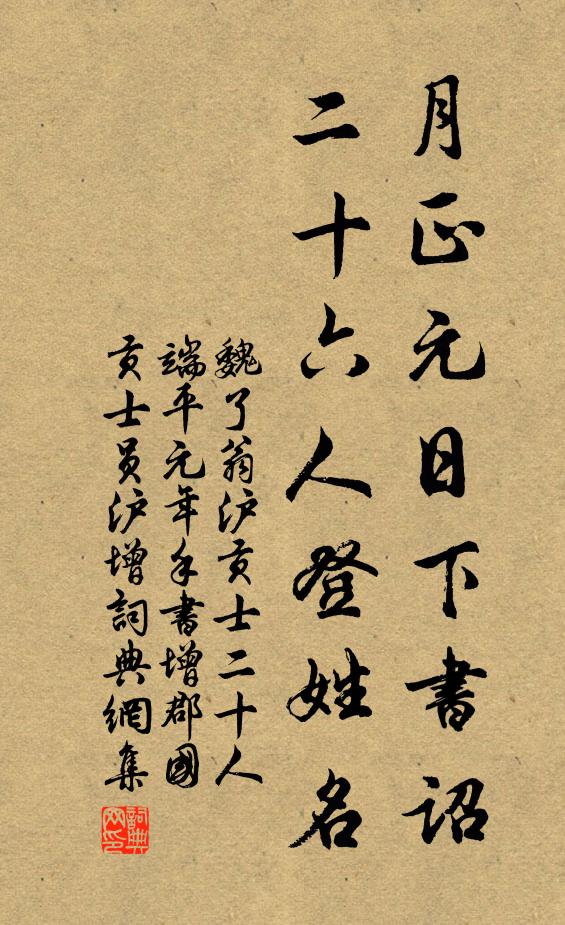 月正元日下書詔
二十六人登姓名
魏了翁沪貢士二十人
端平元年手書增郡國
貢士員沪增詞典網集
詞典網印